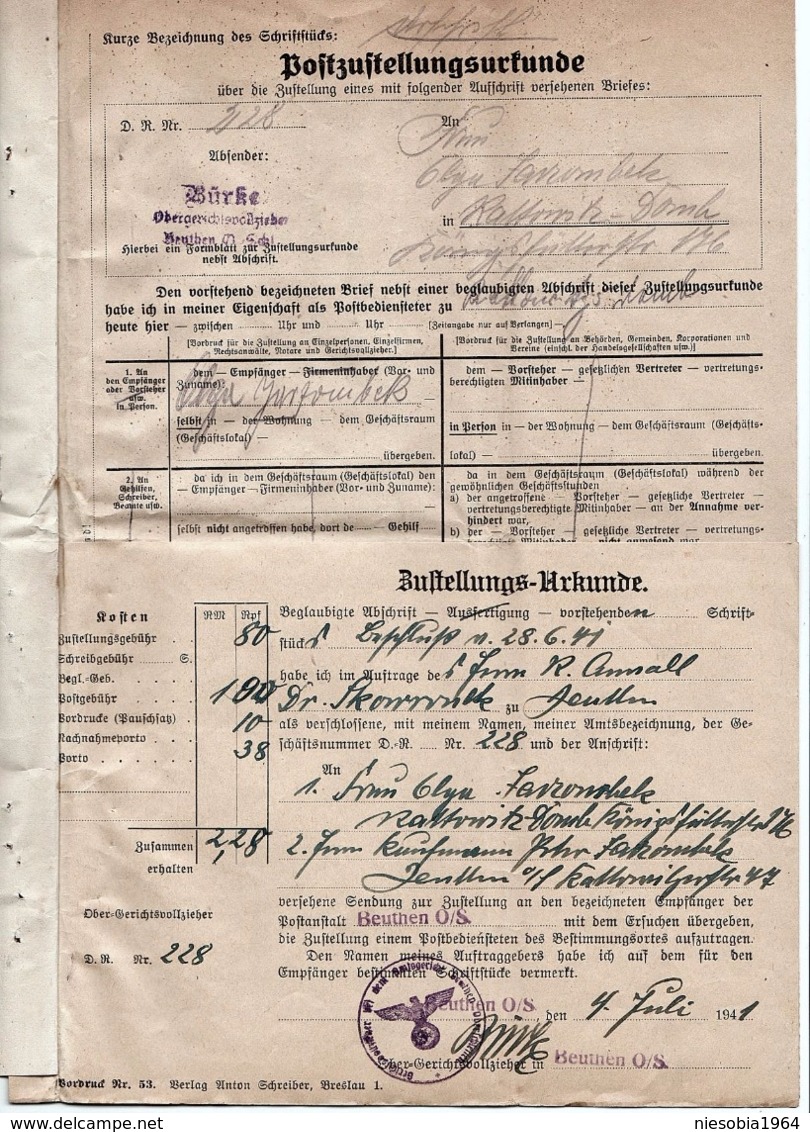 Kurze Bezeichnung des Schriftstücks:
Postzustellungsurkunde
über die Zustellung eines mit folgender Aufschrift versehenen Briefes:
D. R. Nr. 228
An
Frau
Absender:
Olga
Bürke
Obergerichtsvollzieher
Beuthen O. Schl.
in Kattowitz-Domb
Hierbei ein Formblatt zur Zustellungsurkunde
nebst Abschrift.
Den vorstehend bezeichneten Brief nebst einer beglaubigten Abschrift dieser Zustellungsurkunde
habe ich in meiner Eigenschaft als Postbediensteter zu
heute hier — zwischen Uhr und Uhr — [Zeitangabe nur auf Verlangen] —
[Vordruck für die Zustellung an Einzelpersonen, Einzelfirmen,
Rechtsanwälte, Notare und Gerichtsvollzieher.]
[Vordruck für die Zustellung an Behörden, Gemeinden, Korporationen und
Vereine (einschl. der Handelsgesellschaften usw.)]
1. An
den Empfänger
oder Vorsteher
usw.
in Person.
dem — Empfänger — Firmeninhaber (Vor- und
Zuname):
Olga
selbst in — der Wohnung — dem Geschäftsraum
(Geschäftslokal) —
übergeben.
dem — Vorsteher — gesetzlichen Vertreter — vertretungs-
berechtigten Mitinhaber —
in Person in — der Wohnung — dem Geschäftsraum (Geschäfts-
lokal) — übergeben.
2. An
Gehilfen,
Schreiber,
Beamte usw.
da ich in dem Geschäftsraum (Geschäftslokal) den
— Empfänger — Firmeninhaber (Vor- und Zuname):
selbst nicht angetroffen habe, dort de — Gehilf
da in dem Geschäftsraum (Geschäftslokal) während der
gewöhnlichen Geschäftsstunden
a) der angetroffene — Vorsteher — gesetzliche Vertreter —
vertretungsberechtigte Mitinhaber — an der Annahme ver-
hindert war,
b) der — Vorsteher — gesetzliche Vertreter — vertretungs-
Zustellungs-Urkunde.
Kosten RM Rpf
Zustellungsgebühr . . 80
Schreibgebühr S.
Begl.-Geb. . . .
Postgebühr . . . 1 00
Vordrucke (Pauschsatz) . 10
Nachnahmeporto . . 38
Porto . . . . . .
Zusammen 2,28
erhalten
Ober-Gerichtsvollzieher
D. R. Nr. 228
Beglaubigte Abschrift — Ausfertigung — vorstehenden Schrift-
stücks Beschluß v. 28.6.41
habe ich im Auftrage des Herrn R. Anwalt
Dr. zu Beuthen
als verschlossene, mit meinem Namen, meiner Amtsbezeichnung, der Ge-
schäftsnummer D.-R. Nr. 228 und der Anschrift:
An
1. Frau Olga
Kattowitz-Domb
2. Herrn Kaufmann Peter
Beuthen O/S Kattowitzerstr 47
versehene Sendung zur Zustellung an den bezeichneten Empfänger der
Postanstalt Beuthen O/S. mit dem Ersuchen übergeben,
die Zustellung einem Postbediensteten des Bestimmungsortes aufzutragen.
Den Namen meines Auftraggebers habe ich auf dem für den
Empfänger bestimmten Schriftstücke vermerkt.
Beuthen O/S., den 4. Juli 1941
Bürke
Ober-Gerichtsvollzieher in Beuthen O/S.
Vordruck Nr. 53. Verlag Anton Schreiber, Breslau 1.
niesobia1964